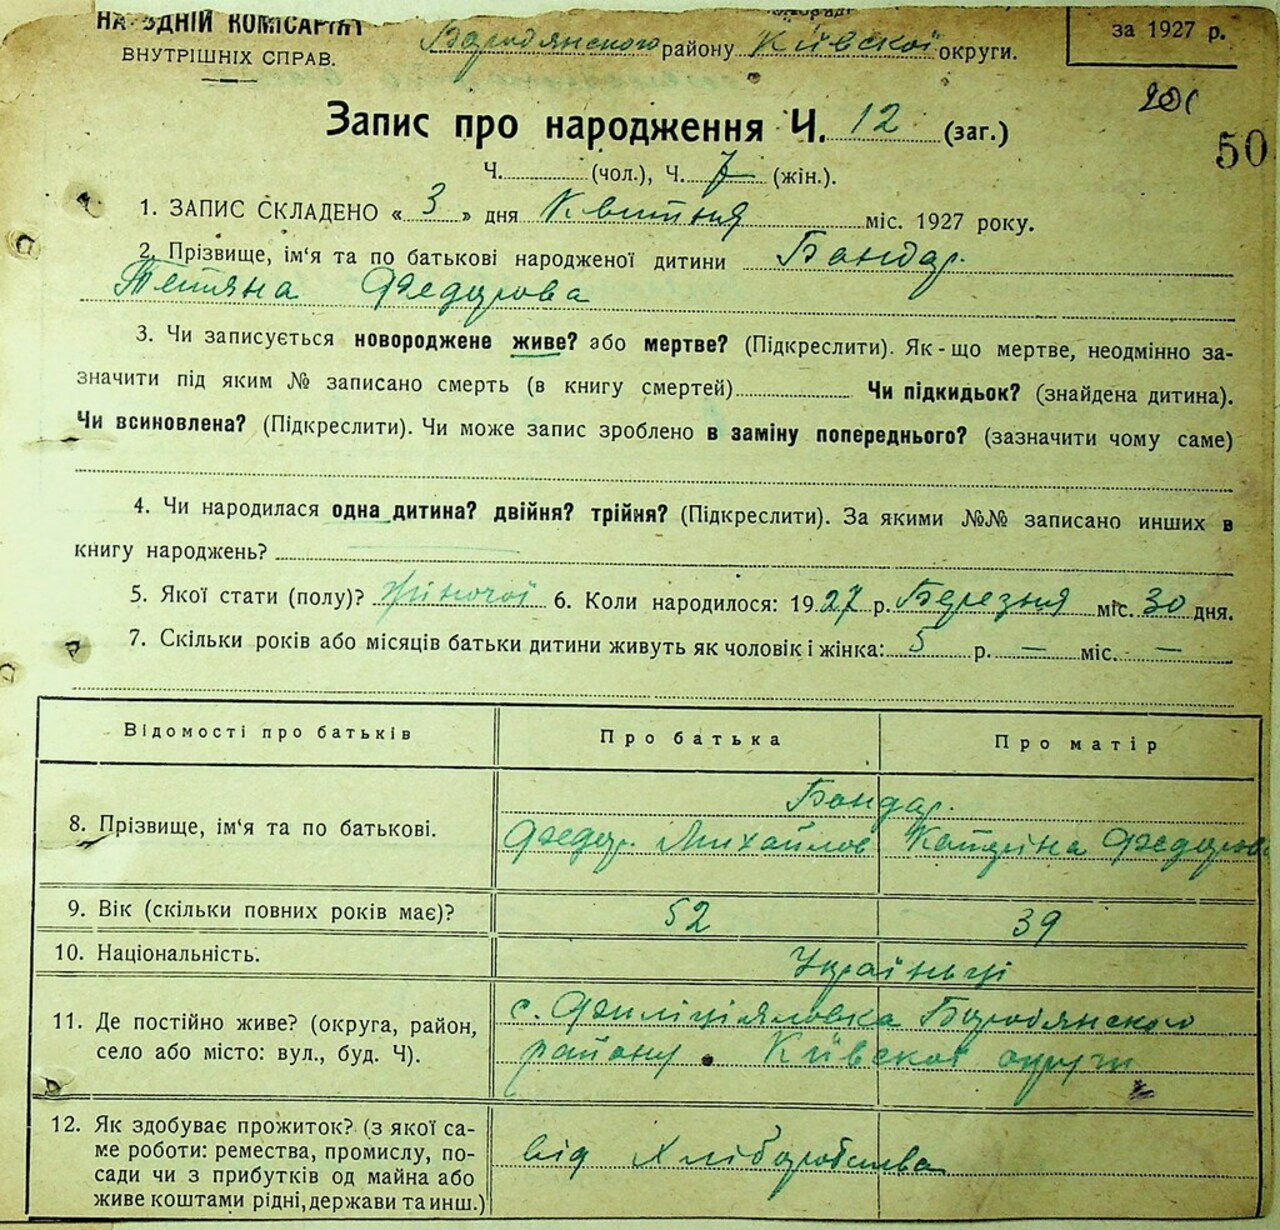 НАРОДНІЙ КОМІСАРІЯТ
ВНУТРІШНІХ СПРАВ.
Бородянского району Київскої округи.
за 1927 р.
50
Запис про народження Ч. 12 (заг.)
Ч. (чол.), Ч. 7 (жін.).
1. ЗАПИС СКЛАДЕНО « 3 » дня Квитня міс. 1927 року.
2. Прізвище, ім‘я та по батькові народженої дитини Бондар.
Тетяна Федорова
3. Чи записується новороджене живе? або мертве? (Підкреслити). Як-що мертве, неодмінно за-
значити під яким № записано смерть (в книгу смертей) Чи підкидьок? (знайдена дитина).
Чи всиновлена? (Підкреслити). Чи може запис зроблено в заміну попереднього? (зазначити чому саме)
4. Чи народилася одна дитина? двійня? трійня? (Підкреслити). За якими №№ записано инших в
книгу народжень?
5. Якої стати (полу)? Жіночої 6. Коли народилося: 1927 р. Березня міс. 30 дня.
7. Скільки років або місяців батьки дитини живуть як чоловік і жінка: 5 р. — міс. —
Відомості про батьків Про батька Про матір
Бондар.
8. Прізвище, ім‘я та по батькові. Федор. Михайлов Катріна Федорова
9. Вік (скільки повних років має)? 52 39
10. Національність. Українці
11. Де постійно живе? (округа, район, с. Филіціяловка Бородянского
село або місто: вул., буд. Ч). району Київскої округи
12. Як здобуває прожиток? (з якої са-
ме роботи: ремества, промислу, по- від Хліборобства
сади чи з прибутків од майна або
живе коштами рідні, держави та инш.)